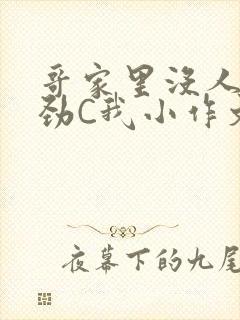 哥家里没人
劲C我小作文
夜幕下的九尾